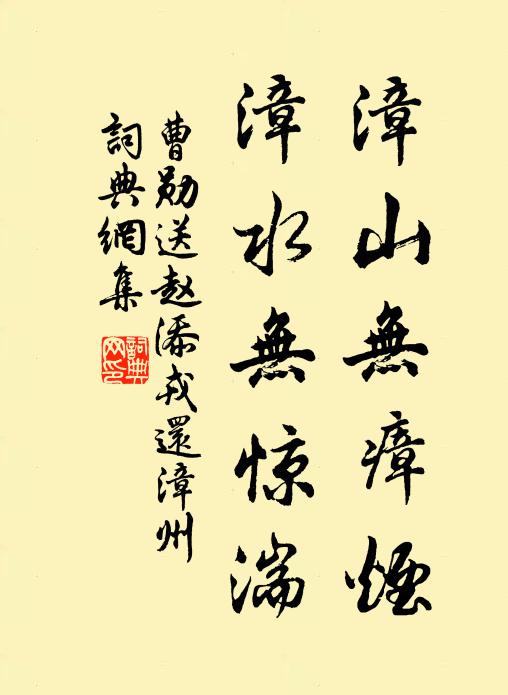 漳山無瘴煙
漳水無惊湍
曹勋送赵添戎還漳州
詞典網集
詞典網印